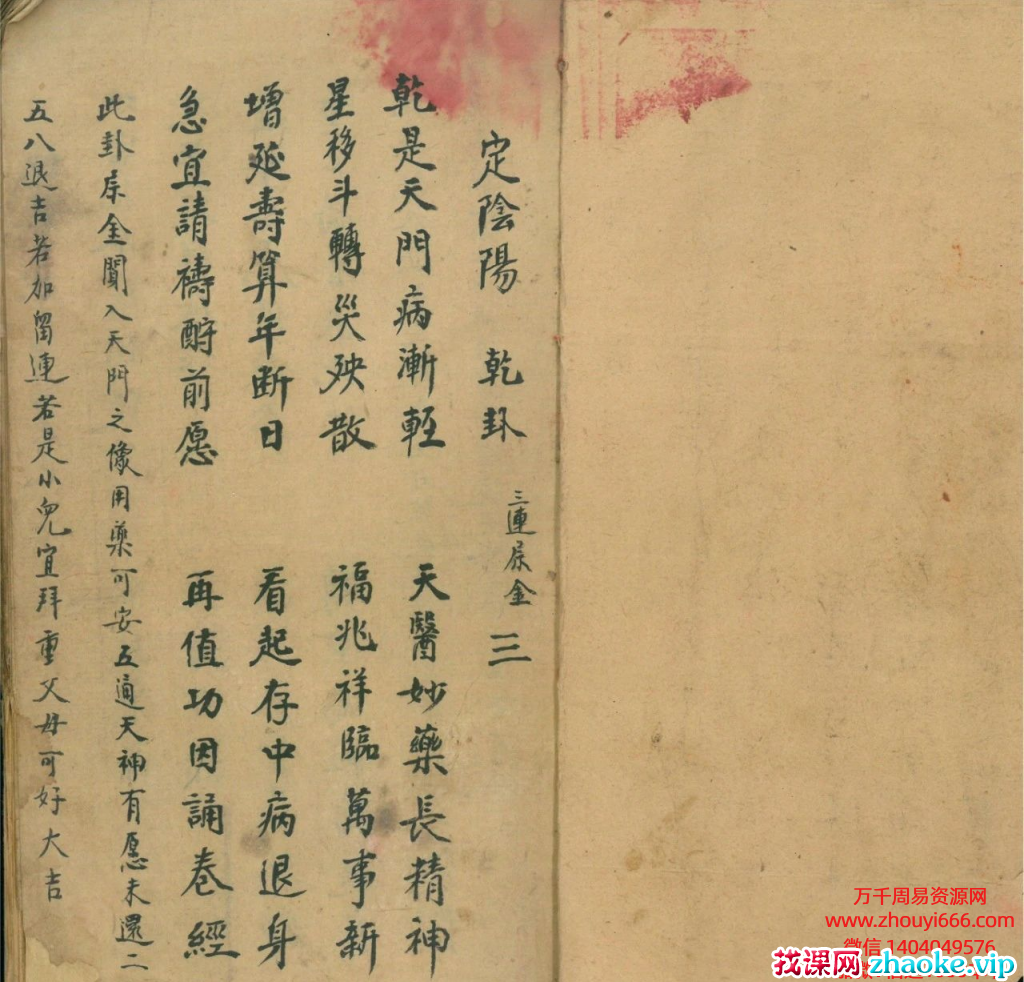 定陰陽 乾卦 三連屬金 ☰
乾是天門病漸輕 天醫妙藥長精神
星移斗轉災殃散 福兆祥臨萬事新
增延壽算年断日 看起存中病退身
急宜請禱酧前愿 再值功因誦卷經
此卦屬金闖入天門之像用藥可安五通天神有愿未還二
五八退吉若加留連若是小兒宜拜重父母可好大吉
万千周易资源网
www.zhouyi666.com
微信 1404049576
找课网 zhaoke.vip